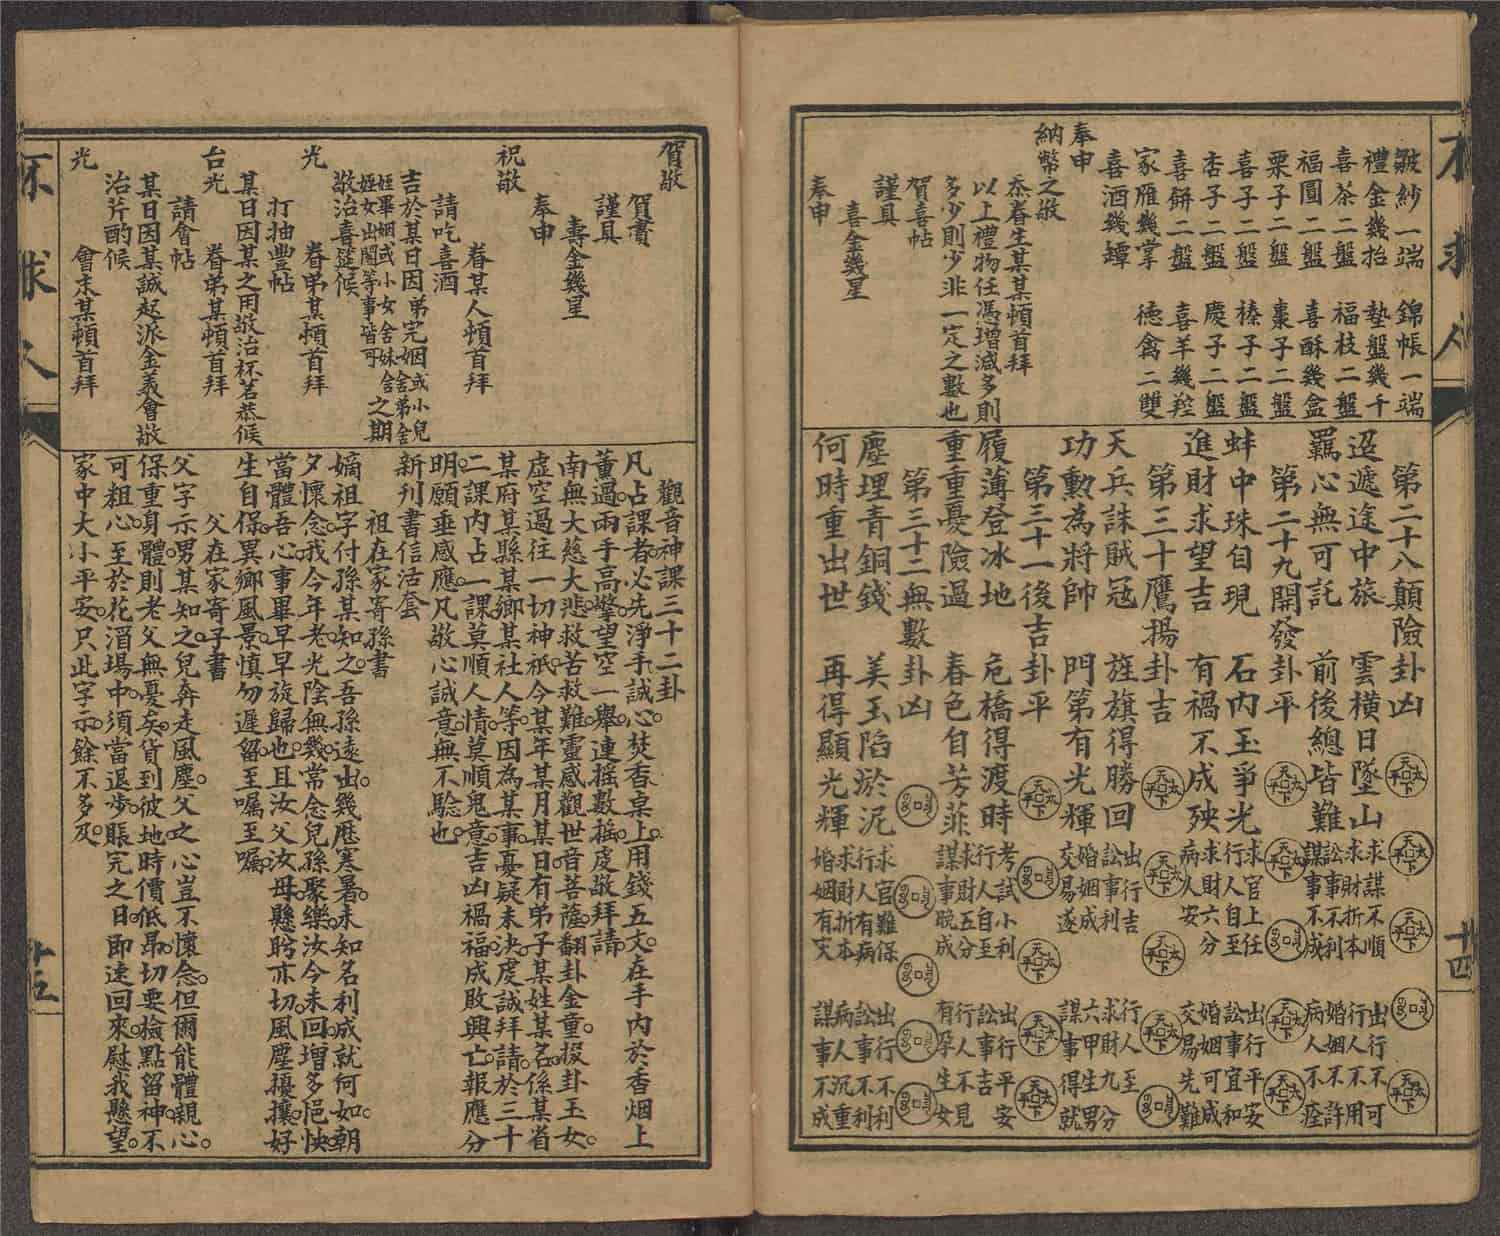 不求人
十四
皺紗一端　錦帳一端
禮金幾抬　墊盤幾千
喜茶二盤　福枝二盤
福圓二盤　喜酥幾盒
栗子二盤　棗子二盤
喜子二盤　榛子二盤
杏子二盤　慶子二盤
喜餅二盤　喜羊幾羫
家雁幾掌　德禽二雙
喜酒幾罈
奉申
納幣之敬
忝眷生某某頓首拜
以上禮物任憑增減多則
多少則少非一定之數也
賀喜帖
謹具
喜金幾星
奉申
第二十八顛險　卦凶
迢遞途中旅　雲橫日墜山
羈心無可託　前後總皆難
求謀不順
求財折本
訟事不利
謀事不成
出行不可
行人不用
婚姻不許
病人不痊
第二十九開發　卦平
蚌中珠自現　石內玉爭光
進財求望吉　有禍不成殃
求官上任
行人自至
求財六分
病人安
出行平安
訟事宜和
婚姻可成
交易先難
第三十鷹揚　卦吉
天兵誅賊寇　旌旗得勝回
功勲為將帥　門第有光輝
出行吉
訟事利
婚姻成
交易遂
行人至
求財九分
六甲生男
謀事得就
第三十一後吉　卦平
履薄登冰地　危橋得渡時
重重憂險過　春色自芳菲
考試小利
行人自至
求財五分
謀事晚成
出行平安
訟事吉
行人不見
有孕生女
第三十二無數　卦凶
塵埋青銅錢　美玉陷淤泥
何時重出世　再得顯光輝
求官難保
行人有病
求財折本
婚姻有灾
出行不利
訟事不利
病人沉重
謀事不成
賀敬
賀賮
謹具
壽金幾星
奉申
祝敬
眷某人頓首拜
請吃喜酒
吉於某日因弟完姻或小兒舍弟舍
姪畢姻或小女舍妹舍
姪女出閣等事皆可
之期
敬治喜筵候
光
眷弟某頓首拜
打抽豐帖
某日因某之用敬治杯茗恭候
台光
眷弟某頓首拜
請會帖
某日因某誠起派金義會敬
治芹酌候
光
會末某頓首拜
觀音神課三十二卦
凡占課者必先淨手誠心焚香桌上用錢五文在手內於香烟上
薰過兩手高擎望空一舉連搖數搖虔敬拜請
南無大慈大悲救苦救難靈感觀世音菩薩翻卦金童掇卦玉女
虛空過往一切神祇今某年某月某日有弟子某姓某名係某省
某府某縣某鄉某社人等因為某事憂疑未決虔誠拜請於三十
二課內占一課莫順人情莫順鬼意吉凶禍福成敗興亡報應分
明願垂感應凡敬心誠意無不騐也
新刊書信活套
祖在家寄孫書
嫡祖字付孫某知之吾孫遠出幾歷寒暑未知名利成就何如朝
夕懷念我今年老光陰無幾常念兒孫聚樂汝今未回增多悒怏
當體吾心事畢早早旋歸也且汝父汝母懸盼亦切風塵擾攘好
生自保異鄉風景慎勿遲留至囑至囑
父在家寄子書
父字示男某知之兒奔走風塵父之心豈不懷念但爾能體親心
保重身體則老父無憂矣貨到彼地時價低昂切要檢點留神不
可粗心至於花酒場中須當退步賬完之日即速回來慰我懸望
家中大小平安只此字示餘不多及
不求人
十五